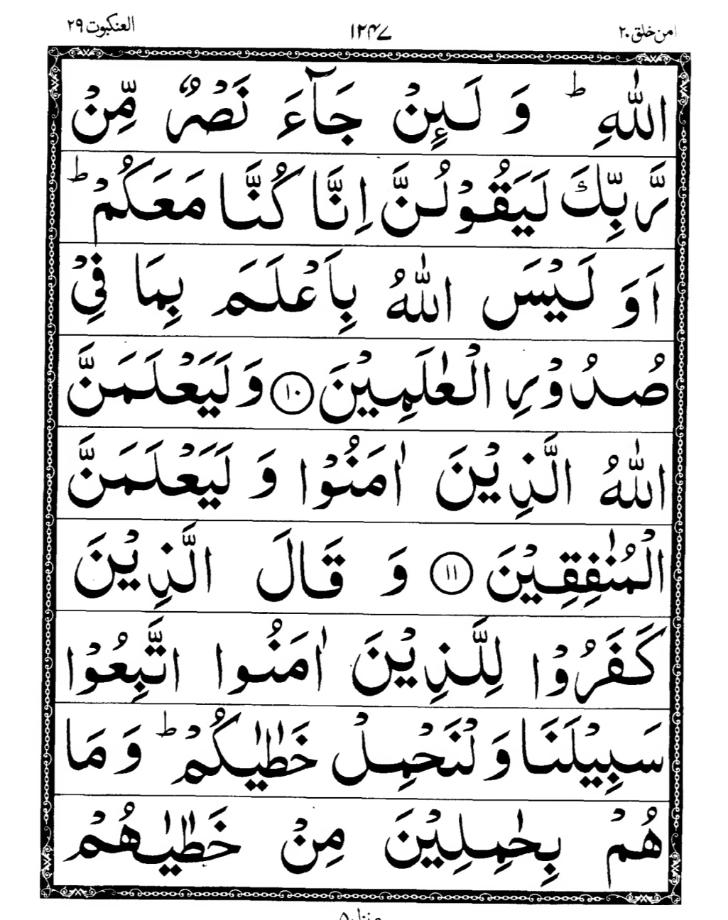 امن خلق ۲۰ ۱۲۴۷ العنکبوت ۲۹
اللّٰهِ ؕ وَ لَىِٕنْ جَآءَ نَصْرٌ مِّنْ
رَّبِّكَ لَیَقُوْلُنَّ اِنَّا كُنَّا مَعَكُمْ ؕ
اَوَ لَیْسَ اللّٰهُ بِاَعْلَمَ بِمَا فِیْ
صُدُوْرِ الْعٰلَمِیْنَ ۱۰ وَ لَیَعْلَمَنَّ
اللّٰهُ الَّذِیْنَ اٰمَنُوْا وَ لَیَعْلَمَنَّ
الْمُنٰفِقِیْنَ ۱۱ وَ قَالَ الَّذِیْنَ
كَفَرُوْا لِلَّذِیْنَ اٰمَنُوا اتَّبِعُوْا
سَبِیْلَنَا وَ لْنَحْمِلْ خَطٰیٰكُمْ ؕ وَ مَا
هُمْ بِحٰمِلِیْنَ مِنْ خَطٰیٰهُمْ